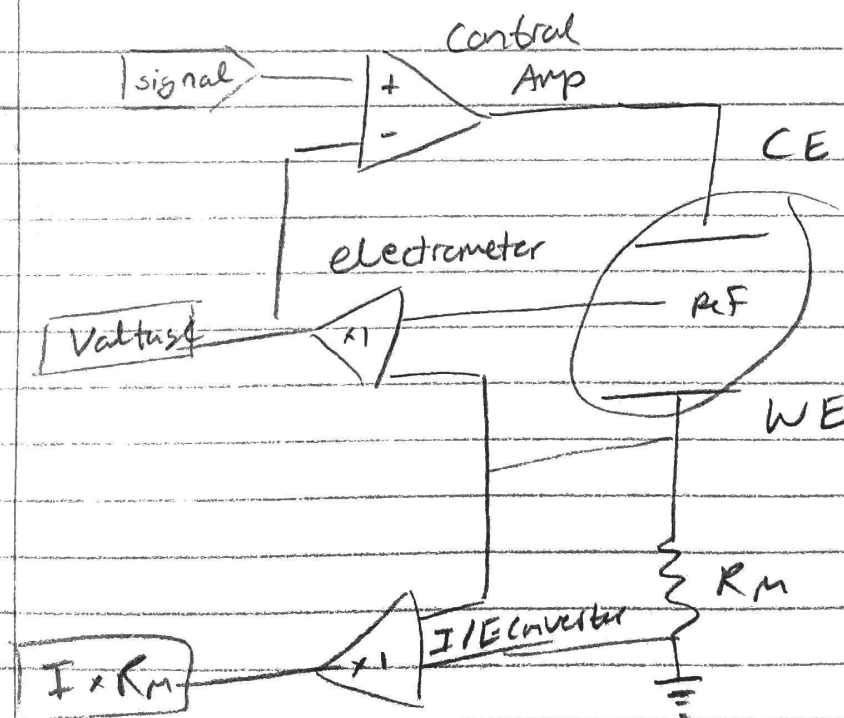 Control
Amp
signal
+
-
CE
electrometer
ReF
Voltage
x1
WE
RM
I/E Converter
x1
I x RM